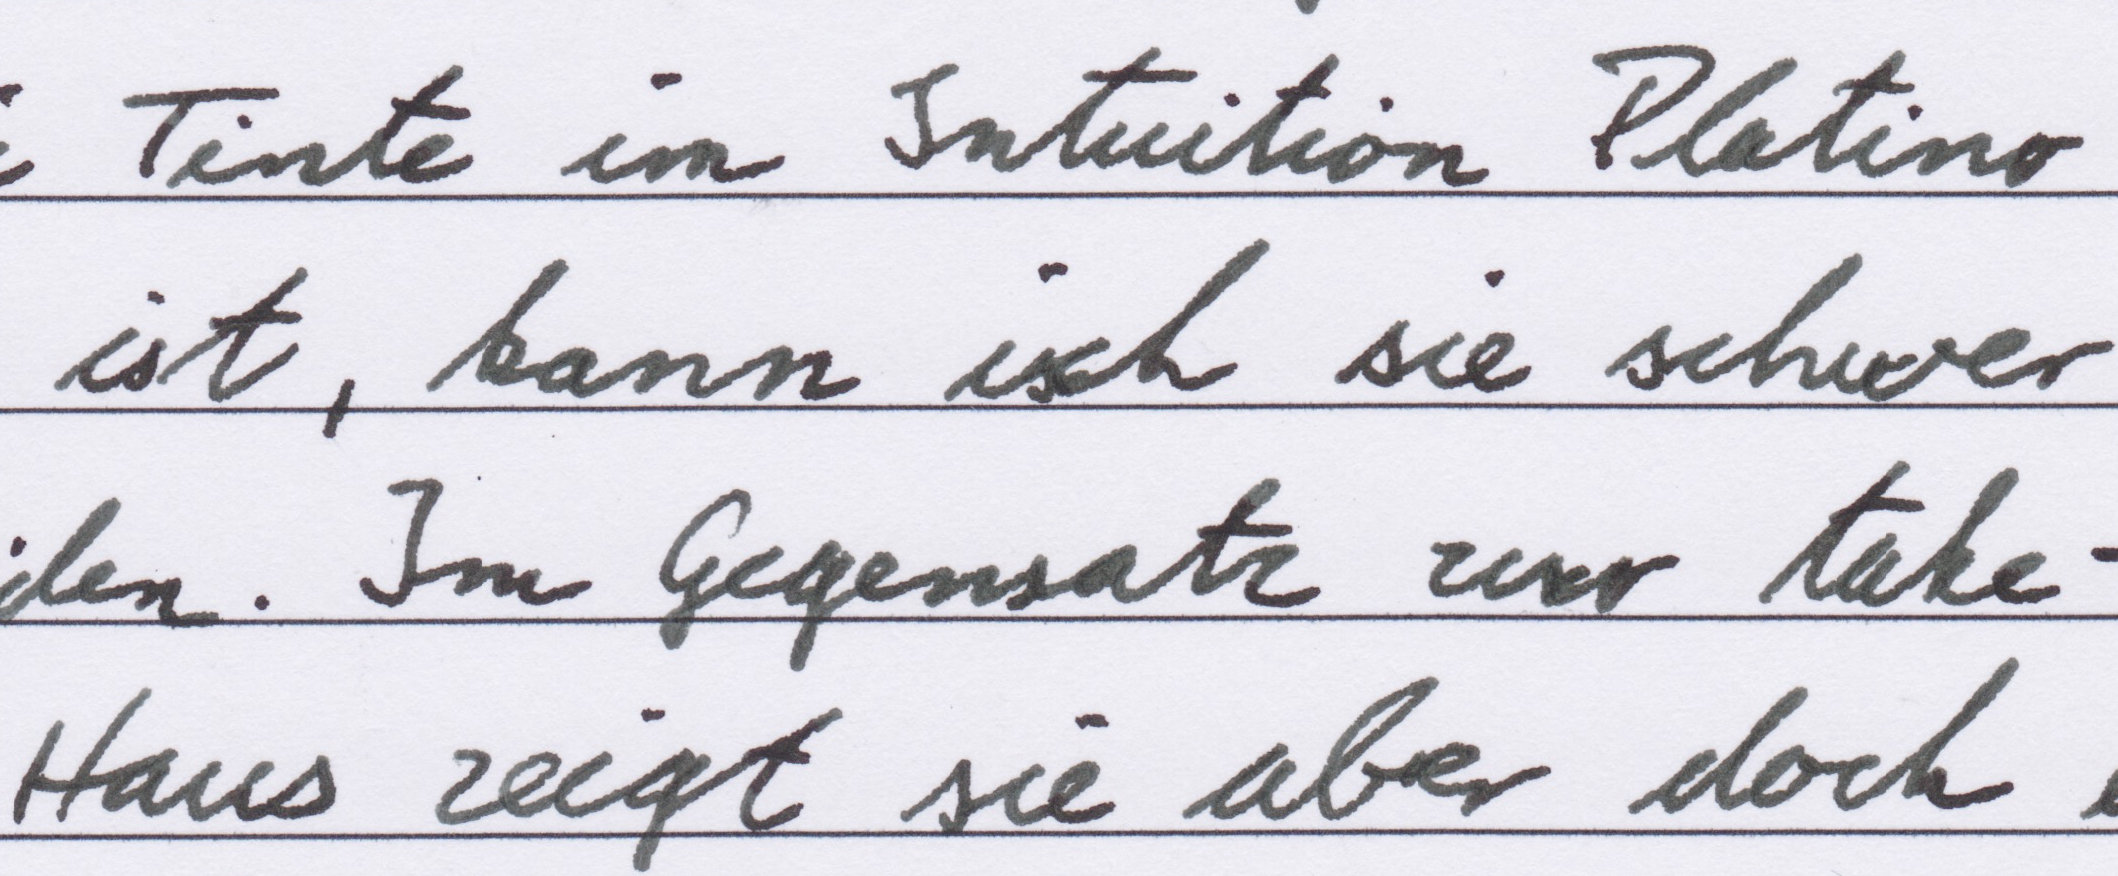 Tinte im Intuition Platino
ist, kann ich sie schwer
den. Im Gegensatz zur take-
Haus zeigt sie aber doch